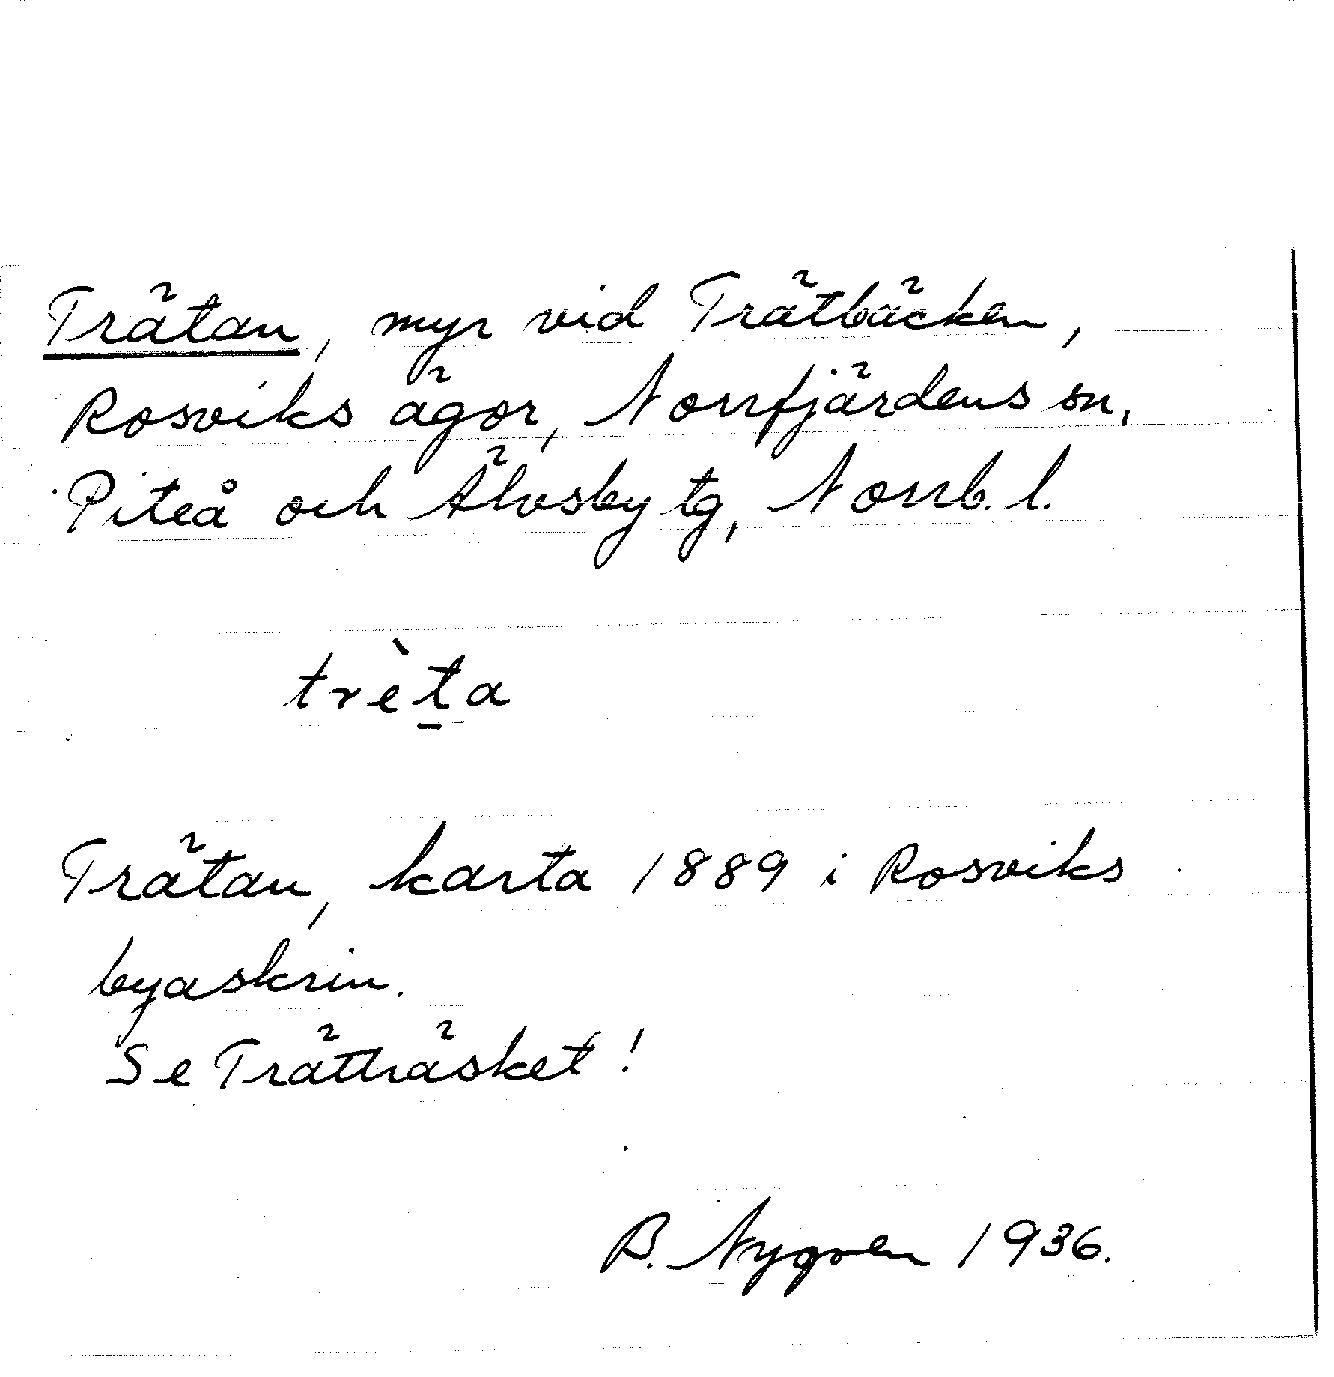 Trätan, myr vid Trätbäcken,
Rosviks ägor, Norrfjärdens sn,
Piteå och Älvsby tg, Norrb. l.
trèt̠a
Trätan, karta 1889 i Rosviks
byaskrin.
Se Trätträsket!
B. Nygren 1936.